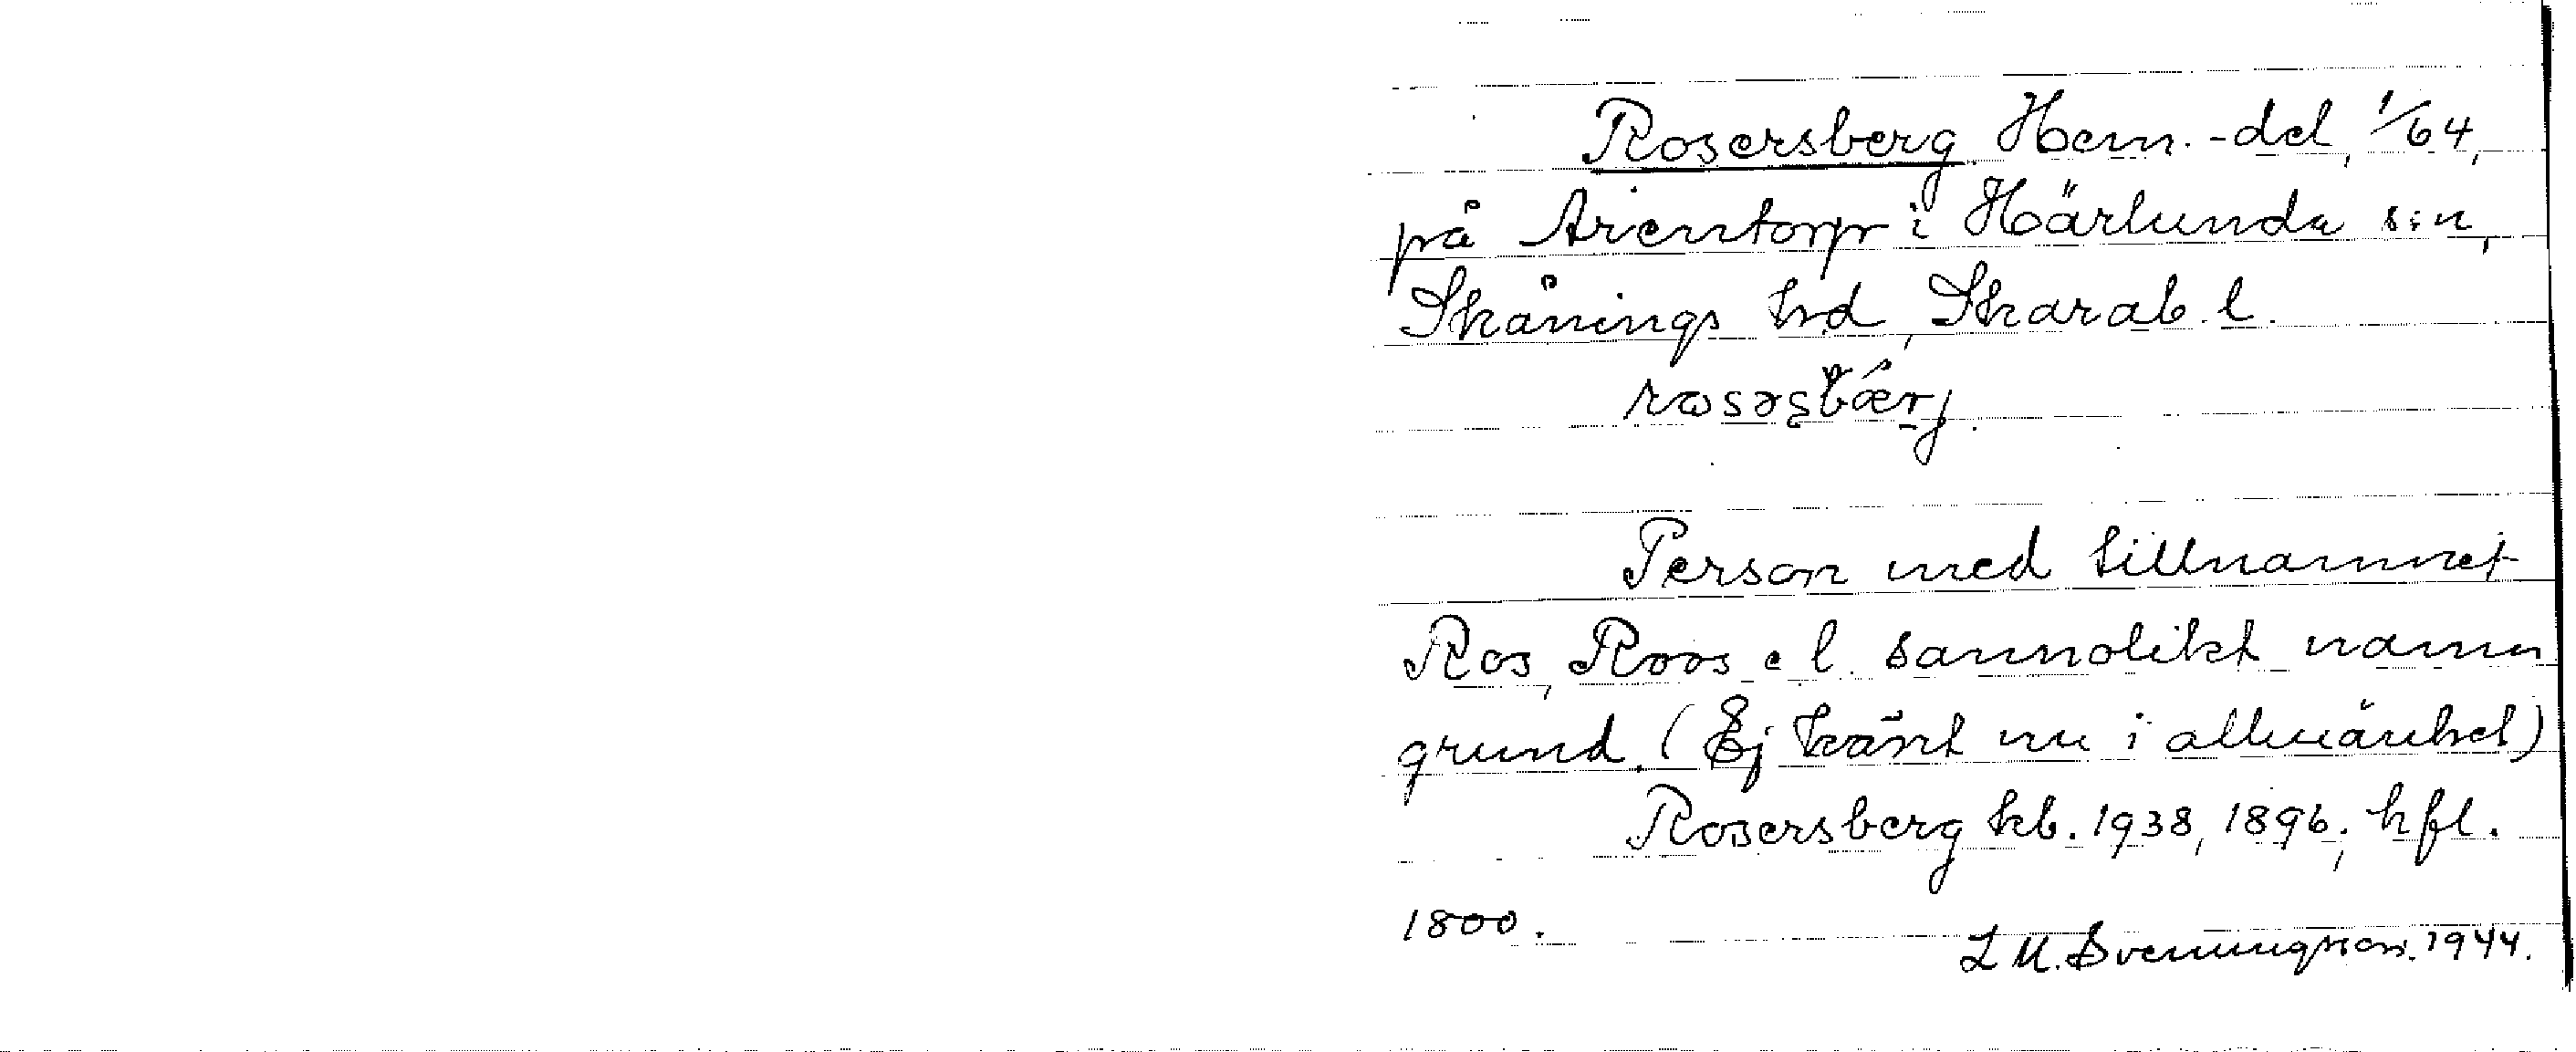 Rosersberg Hem.-del, 1/64,
på Arentorp i Härlunda s:n,
Skånings hd, Skarab. l.
Person med tillnamnet
Ros, Roos e l. sannolikt namn
grund. (Ej känt nu i allmänhet)
Rosersberg kb. 1938, 1896; hfl.
1800.
L M. Svenungsson. 1944.